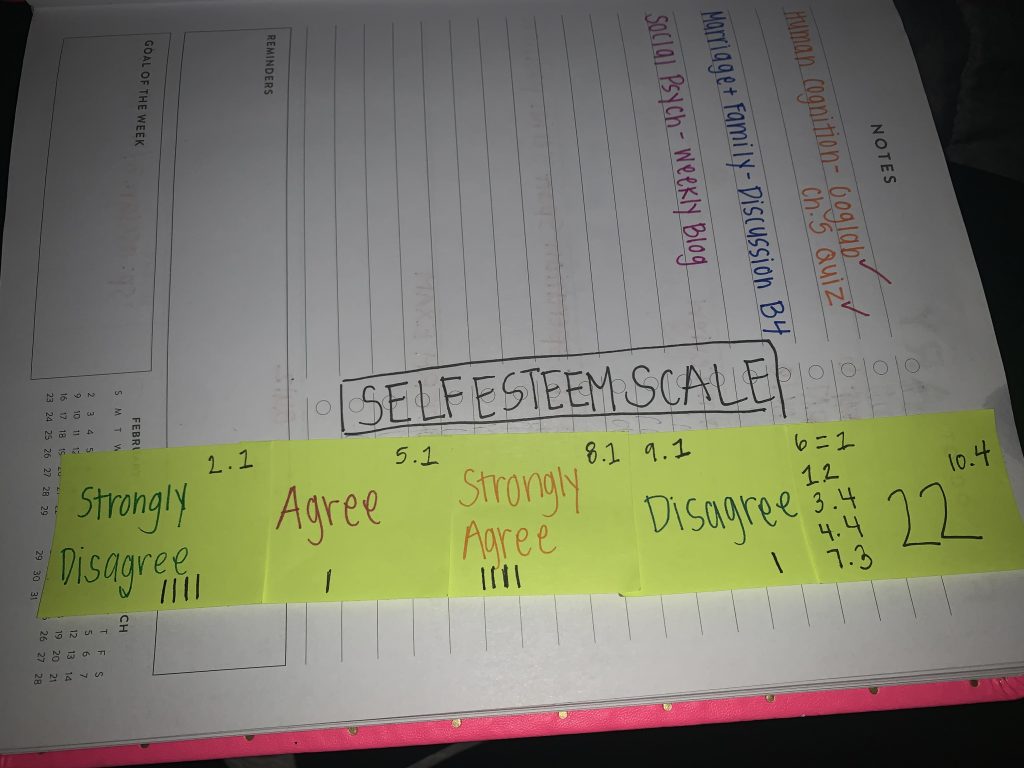 NOTES
Human cognition - Coglab ✓
Ch. 5 QUIZ ✓
Marriage + Family - Discussion B4
Social Psych - weekly Blog
REMINDERS
GOAL OF THE WEEK
SELF ESTEEM SCALE
2.1
Strongly
Disagree
IIII
5.1
Agree
I
8.1
Strongly
Agree
IIII
9.1
Disagree
I
6=1
1.2
3.4
4.4
7.3
10.4
22
S M T W
2 3 4 5
9 10 11 12
16 17 18
23 24 25 26 27 28 29
CH
T F S
5 6 7
12 13 14
19 20 21
26 27 28
29 30 31